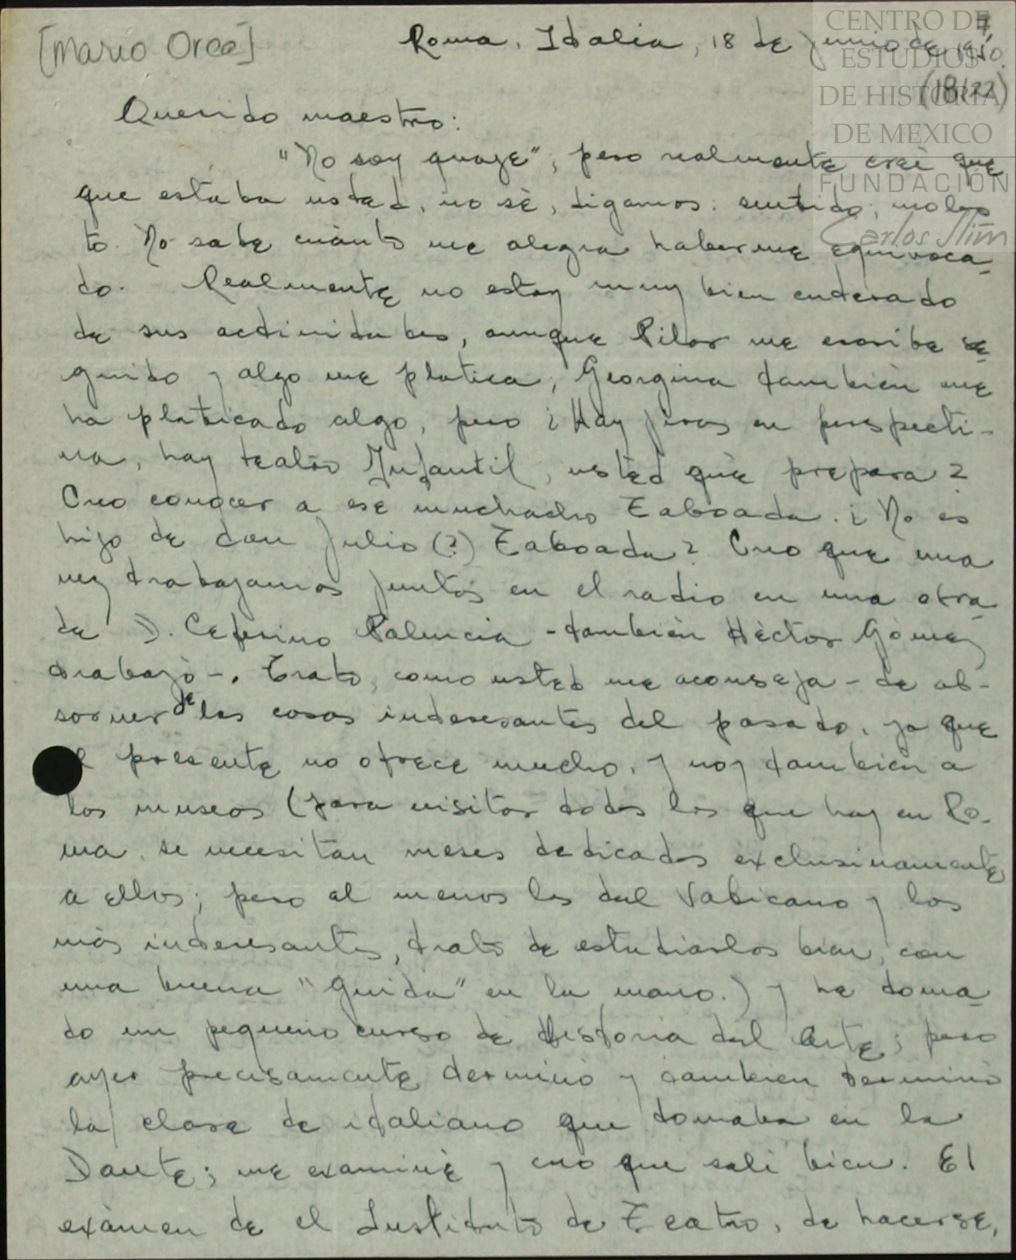 [Mario Orea]
Roma, Italia, 18 de junio de 1950.
(18/22)
CENTRO DE
ESTUDIOS
DE HISTORIA
DE MEXICO
FUNDACIÓN
Carlos Slim
Querido maestro:
"No soy guaje"; pero realmente creí que
que estaba usted, no sé, digamos: sentido, moles
to. No sabe cuánto me alegra haberme equivoca-
do. Realmente no estoy muy bien enterado
de sus actividades, aunque Pilar me escribe se
guido y algo me platica; Georgina también me
ha platicado algo, pero ¿Hay jiras en perspecti-
va, hay teatro Infantil, usted qué prepara?
Creo conocer a ese muchacho Taboada. ¿No es
hijo de don Julio (?) Taboada? Creo que una
vez trabajamos juntos en el radio en una obra
de D. Ceferino Palencia - también Héctor Gómez
trabajó -. Trato, como usted me aconseja - de ab-
sorver de las cosas interesantes del pasado, ya que
el presente no ofrece mucho, y voy también a
los museos (para visitar todos los que hay en Ro-
ma, se necesitan meses dedicados exclusivamente
a ellos; pero al menos los del Vaticano y los
más interesantes, trato de estudiarlos bien, con
una buena "guida" en la mano.) y he toma-
do un pequeño curso de Historia del Arte; pero
ayer precisamente terminó y también terminó
la clase de italiano que tomaba en la
Dante; me examiné y creo que salí bien. El
exámen de el Instituto de Teatro, de hacerse,